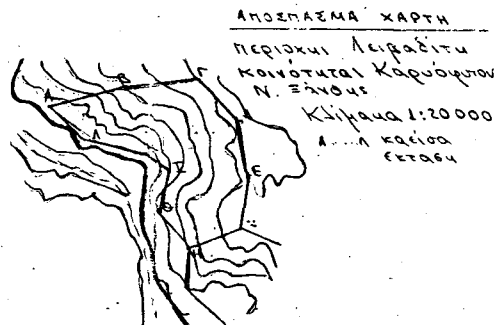 ΑΠΟΣΠΑΣΜΑ ΧΑΡΤΗ
περιοχής Λειβαδίτη
κοινότητας Καρυόφυτου
Ν. Ξάνθης
Κλίμακα 1:20000
Α....Λ καείσα
έκταση
Α
Β
Γ
Λ
Ε
Θ